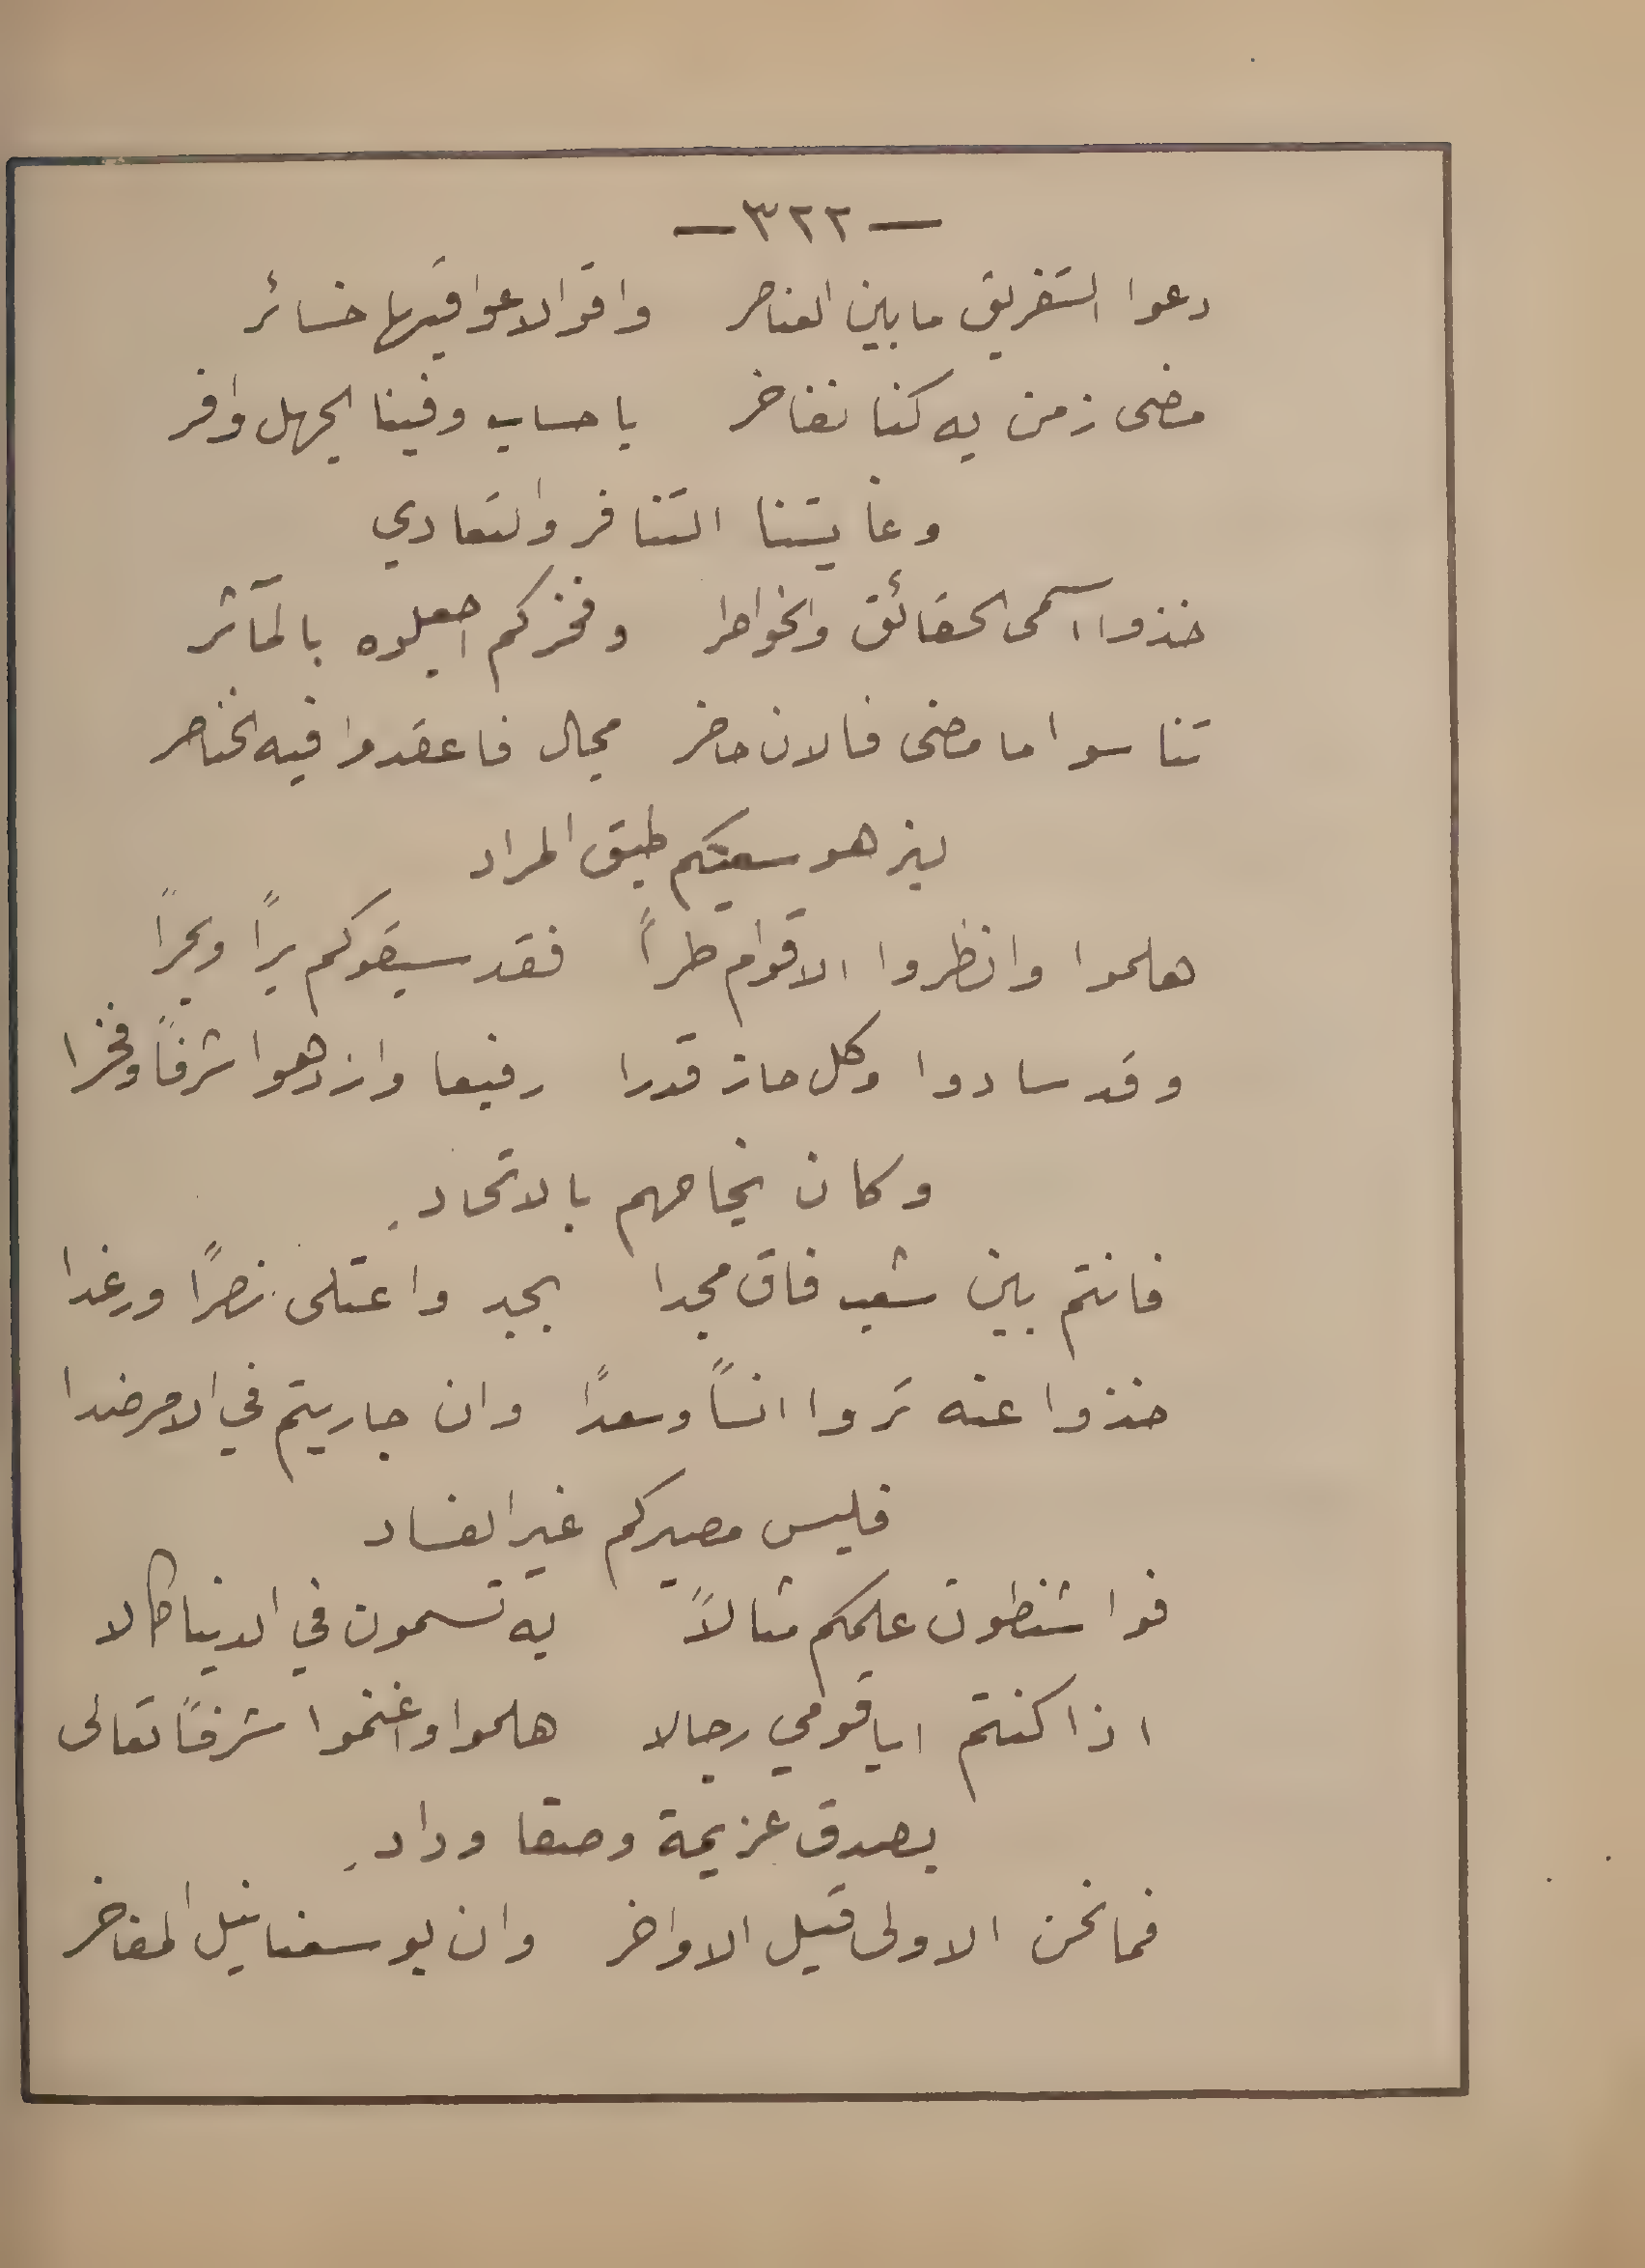 — ٣٢٢ —
دعوا التفريق ما بين العناصر واقوالا عواقبها خسائر
مضى زمن به كنا نفاخر باحساب وفينا الجهل وافر
وغايتنا التنافر والتعادي
خذوا اسمى الحقائق والخواطر وفخركم اجعلوه بالمآثر
تناسوا ما مضى فالان حاضر مجال فاعقدوا فيه الخناصر
ليزهو سعيكم طبق المراد
هلموا وانظروا الاقوام طراً فقد سبقوكم براً وبحراً
وقد سادوا وكل حاز قدرا رفيعا وازدهوا شرفاً وفخرا
وكان نجاحهم بالاتحاد
فانتم بين شعب فاق مجدا بجد واعتلى نصراً ورغدا
خذوا عنه تروا انساً وسعداً وان جاريتم في الامر ضدا
فليس مصيركم غير الفساد
فوا شنطون علمكم مثالاً به تسمون في الدنيا كمالا
اذا كنتم ايا قومي رجالا هلموا واغنموا شرفاً تعالى
بصدق عزيمة وصفا وداد
فما نحن الاولى قبل الاواخر وان بوسعنا نيل المفاخر